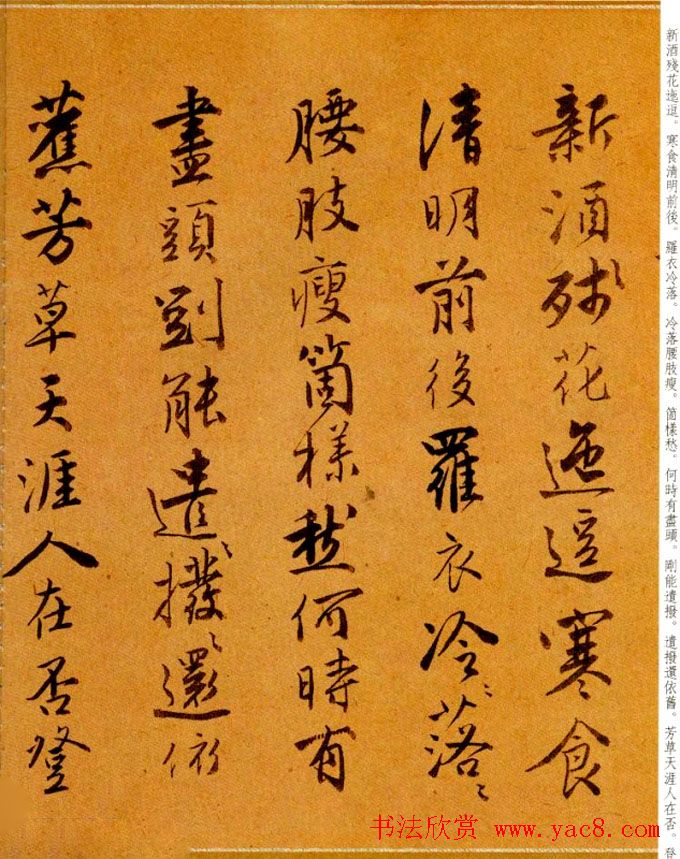 新酒殘花迤逗。寒食清明前後。羅衣冷落。冷落腰肢瘦。箇樣愁。何時有盡頭。剛能遣撥。遣撥還依舊。芳草天涯人在否。登
新酒殘花迤逗寒食
清明前後羅衣冷ゝ落ゝ
腰肢瘦箇樣愁何時有
盡頭剛能遣ゝ撥ゝ還依
舊芳草天涯人在否登
书法欣赏 www.yac8.com